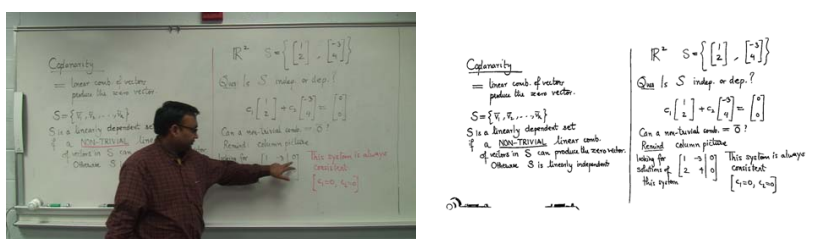 Coplanarity
= linear comb. of vectors
produce the zero vector.
S = {v̄₁, v̄₂, ..., v̄ₖ}
S is a linearly dependent set
if a NON-TRIVIAL linear
of vectors in S can
Otherwise S is
ℝ² S = {[1 2], [-3 4]}
Ques Is S indep. or dep.?
c₁ [1 2] + c₂ [-3 4] = [0 0]
Can a non-trivial comb. = 0̄ ?
Remind: column picture
looking for [1 -3 | 0] This system is always
consistent
[c₁=0, c₂=0]
Coplanarity
= linear comb. of vectors
produce the zero vector.
S = {v̄₁, v̄₂, ..., v̄ₖ}
S is a linearly dependent set
if a NON-TRIVIAL linear comb.
of vectors in S can produce the zero vector.
Otherwise S is linearly independent
ℝ² S = {[1 2], [-3 4]}
Ques Is S indep. or dep.?
c₁ [1 2] + c₂ [-3 4] = [0 0]
Can a non-trivial comb. = 0̄ ?
Remind column picture
looking for [1 -3 | 0] This system is always
solutions of [2 4 | 0] consistent
this system [c₁=0, c₂=0]